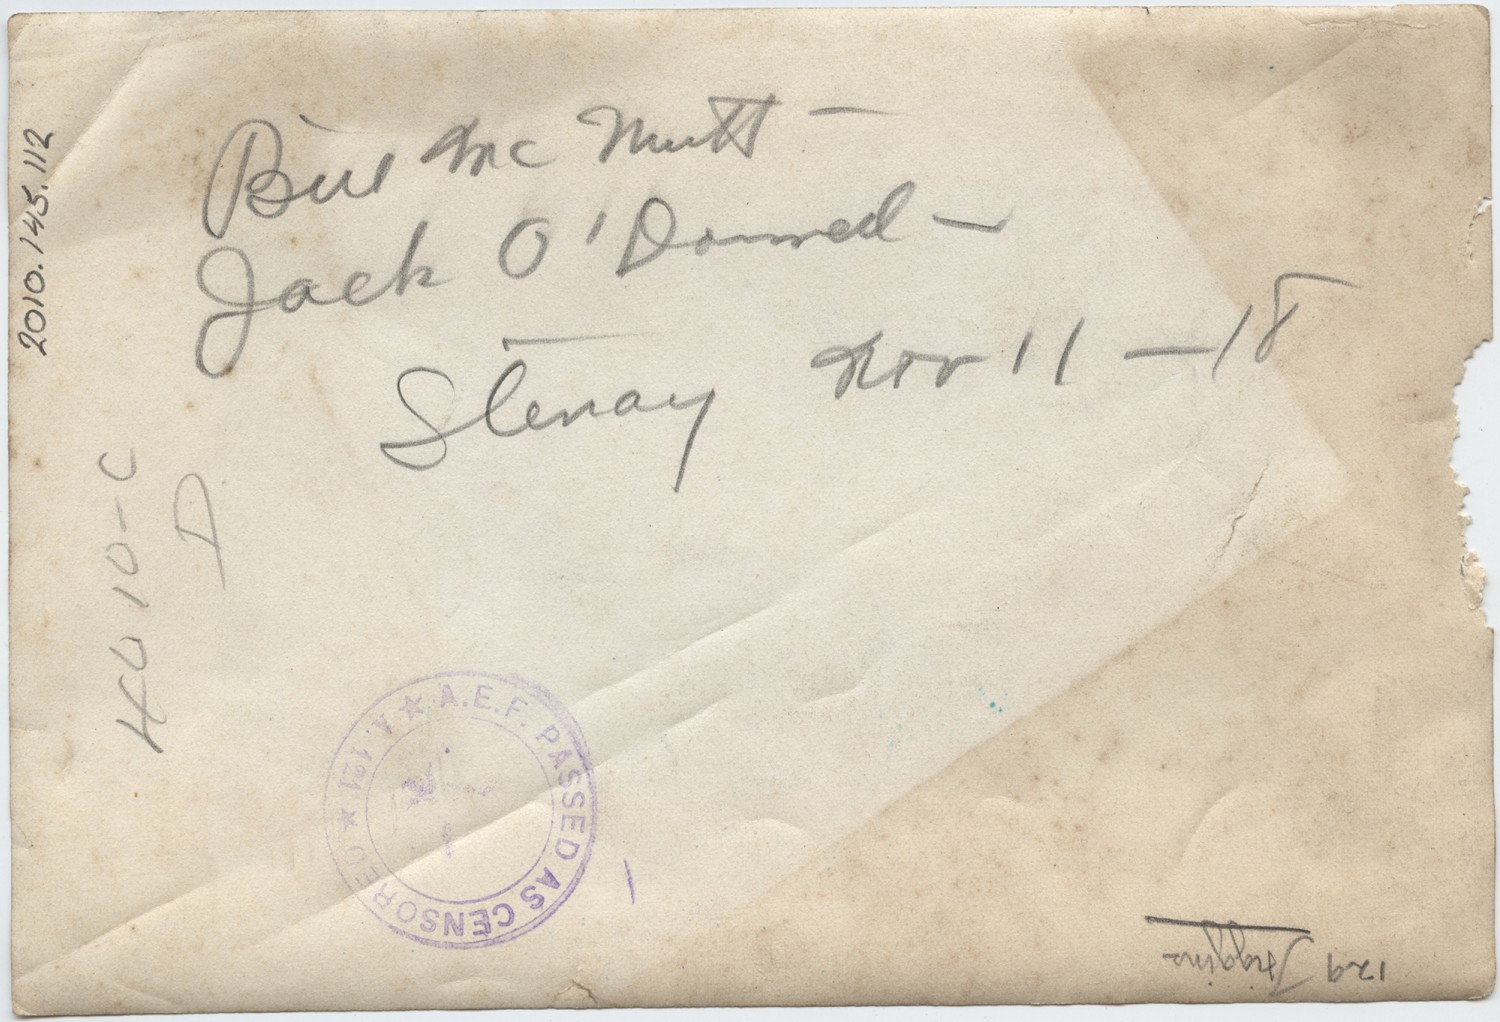 Bill McNutt -
Jack O'Donnell -
Stenay Nov 11 - 18
2010.145.112
4010-C
D
★ A.E.F. PASSED AS CENSORED ★ A.121
129 Higgins